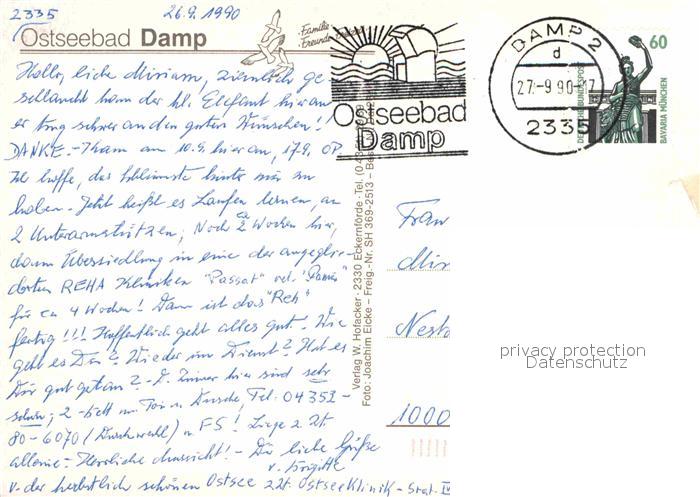 2335 26.9.1990
Ostseebad Damp
Familie
Freunde
Hallo, liebe Miriam, ziemlich ge-
schlaucht kam der kl. Elefant hier an
er trug schwer an den guten Wünschen!
DANKE. - Kam am 10.9. hier an, 17.9. OP
Ich hoffe, das Schlimmste hinter mir zu
haben. Jetzt heißt es Laufen lernen, an
2 Unterarmstützen; Noch ca 2 Wochen hier,
dann Übersiedlung in eine der angeglie-
derten REHA Kliniken "Passat" od.
für ca 4 Wochen! Dann ist das "Reh"
fertig!!! Hoffentlich geht alles gut. Wie
geht es Dir? Wieder im Dienst? Hat es
Dir gut getan? - D. Zimmer hier sind sehr
schön; 2-bett m. Toi u Dusche, Tel: 04351-
80-6070 (Durchwahl) u FS! Liege z Zt.
alleine. Herrliche Aussicht! - Dir liebe Grüße
v. Brigitte
v. der herbstlich schönen Ostsee z Zt. Ostseeklinik - Stat. IV
Verlag W. Hofacker · 2330 Eckernförde · Tel. (04351)
Foto: Joachim Eicke – Freig.-Nr. SH 369-2513 –
Ostseebad
Damp
DAMP 2
d
27.-9.90-17
2335
60
DEUTSCHE BUNDESPOST
BAVARIA MÜNCHEN
Frau
Mir
Nesto
1000
privacy protection
Datenschutz